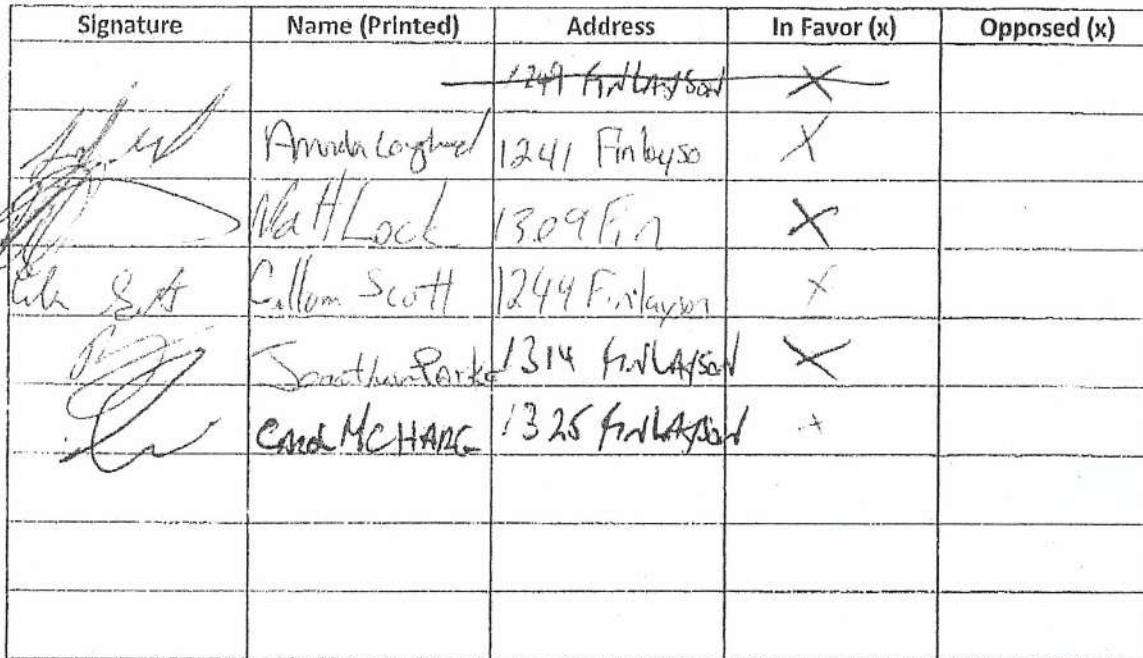 Signature Name (Printed) Address In Favor (x) Opposed (x)
1249 FINLAYSON X
Amanda 1241 Finlayso X
Matt Lock 1309 Fin X
Callum Scott 1244 Finlayson X
Jonathan Parke 1314 FINLAYSON X
CAROL MCHARG 1325 FINLAYSON x